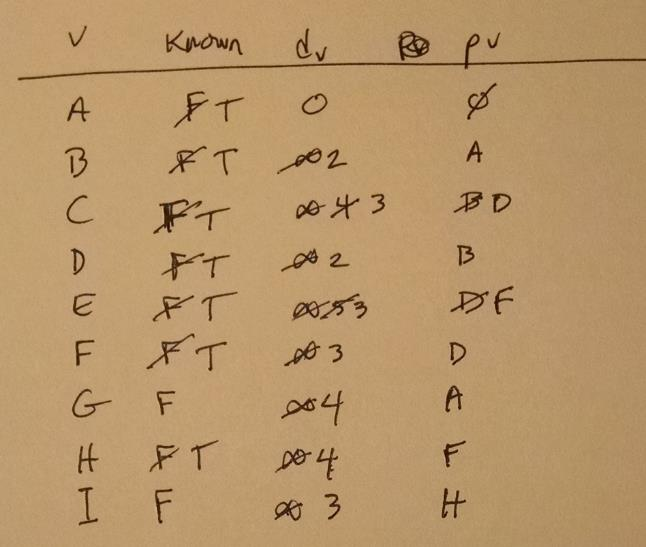 V Known dv pv
A F T 0 ∅
B F T ∞ 2 A
C F T ∞ 4 3 B D
D F T ∞ 2 B
E F T ∞ 5 3 D F
F F T ∞ 3 D
G F ∞ 4 A
H F T ∞ 4 F
I F ∞ 3 H